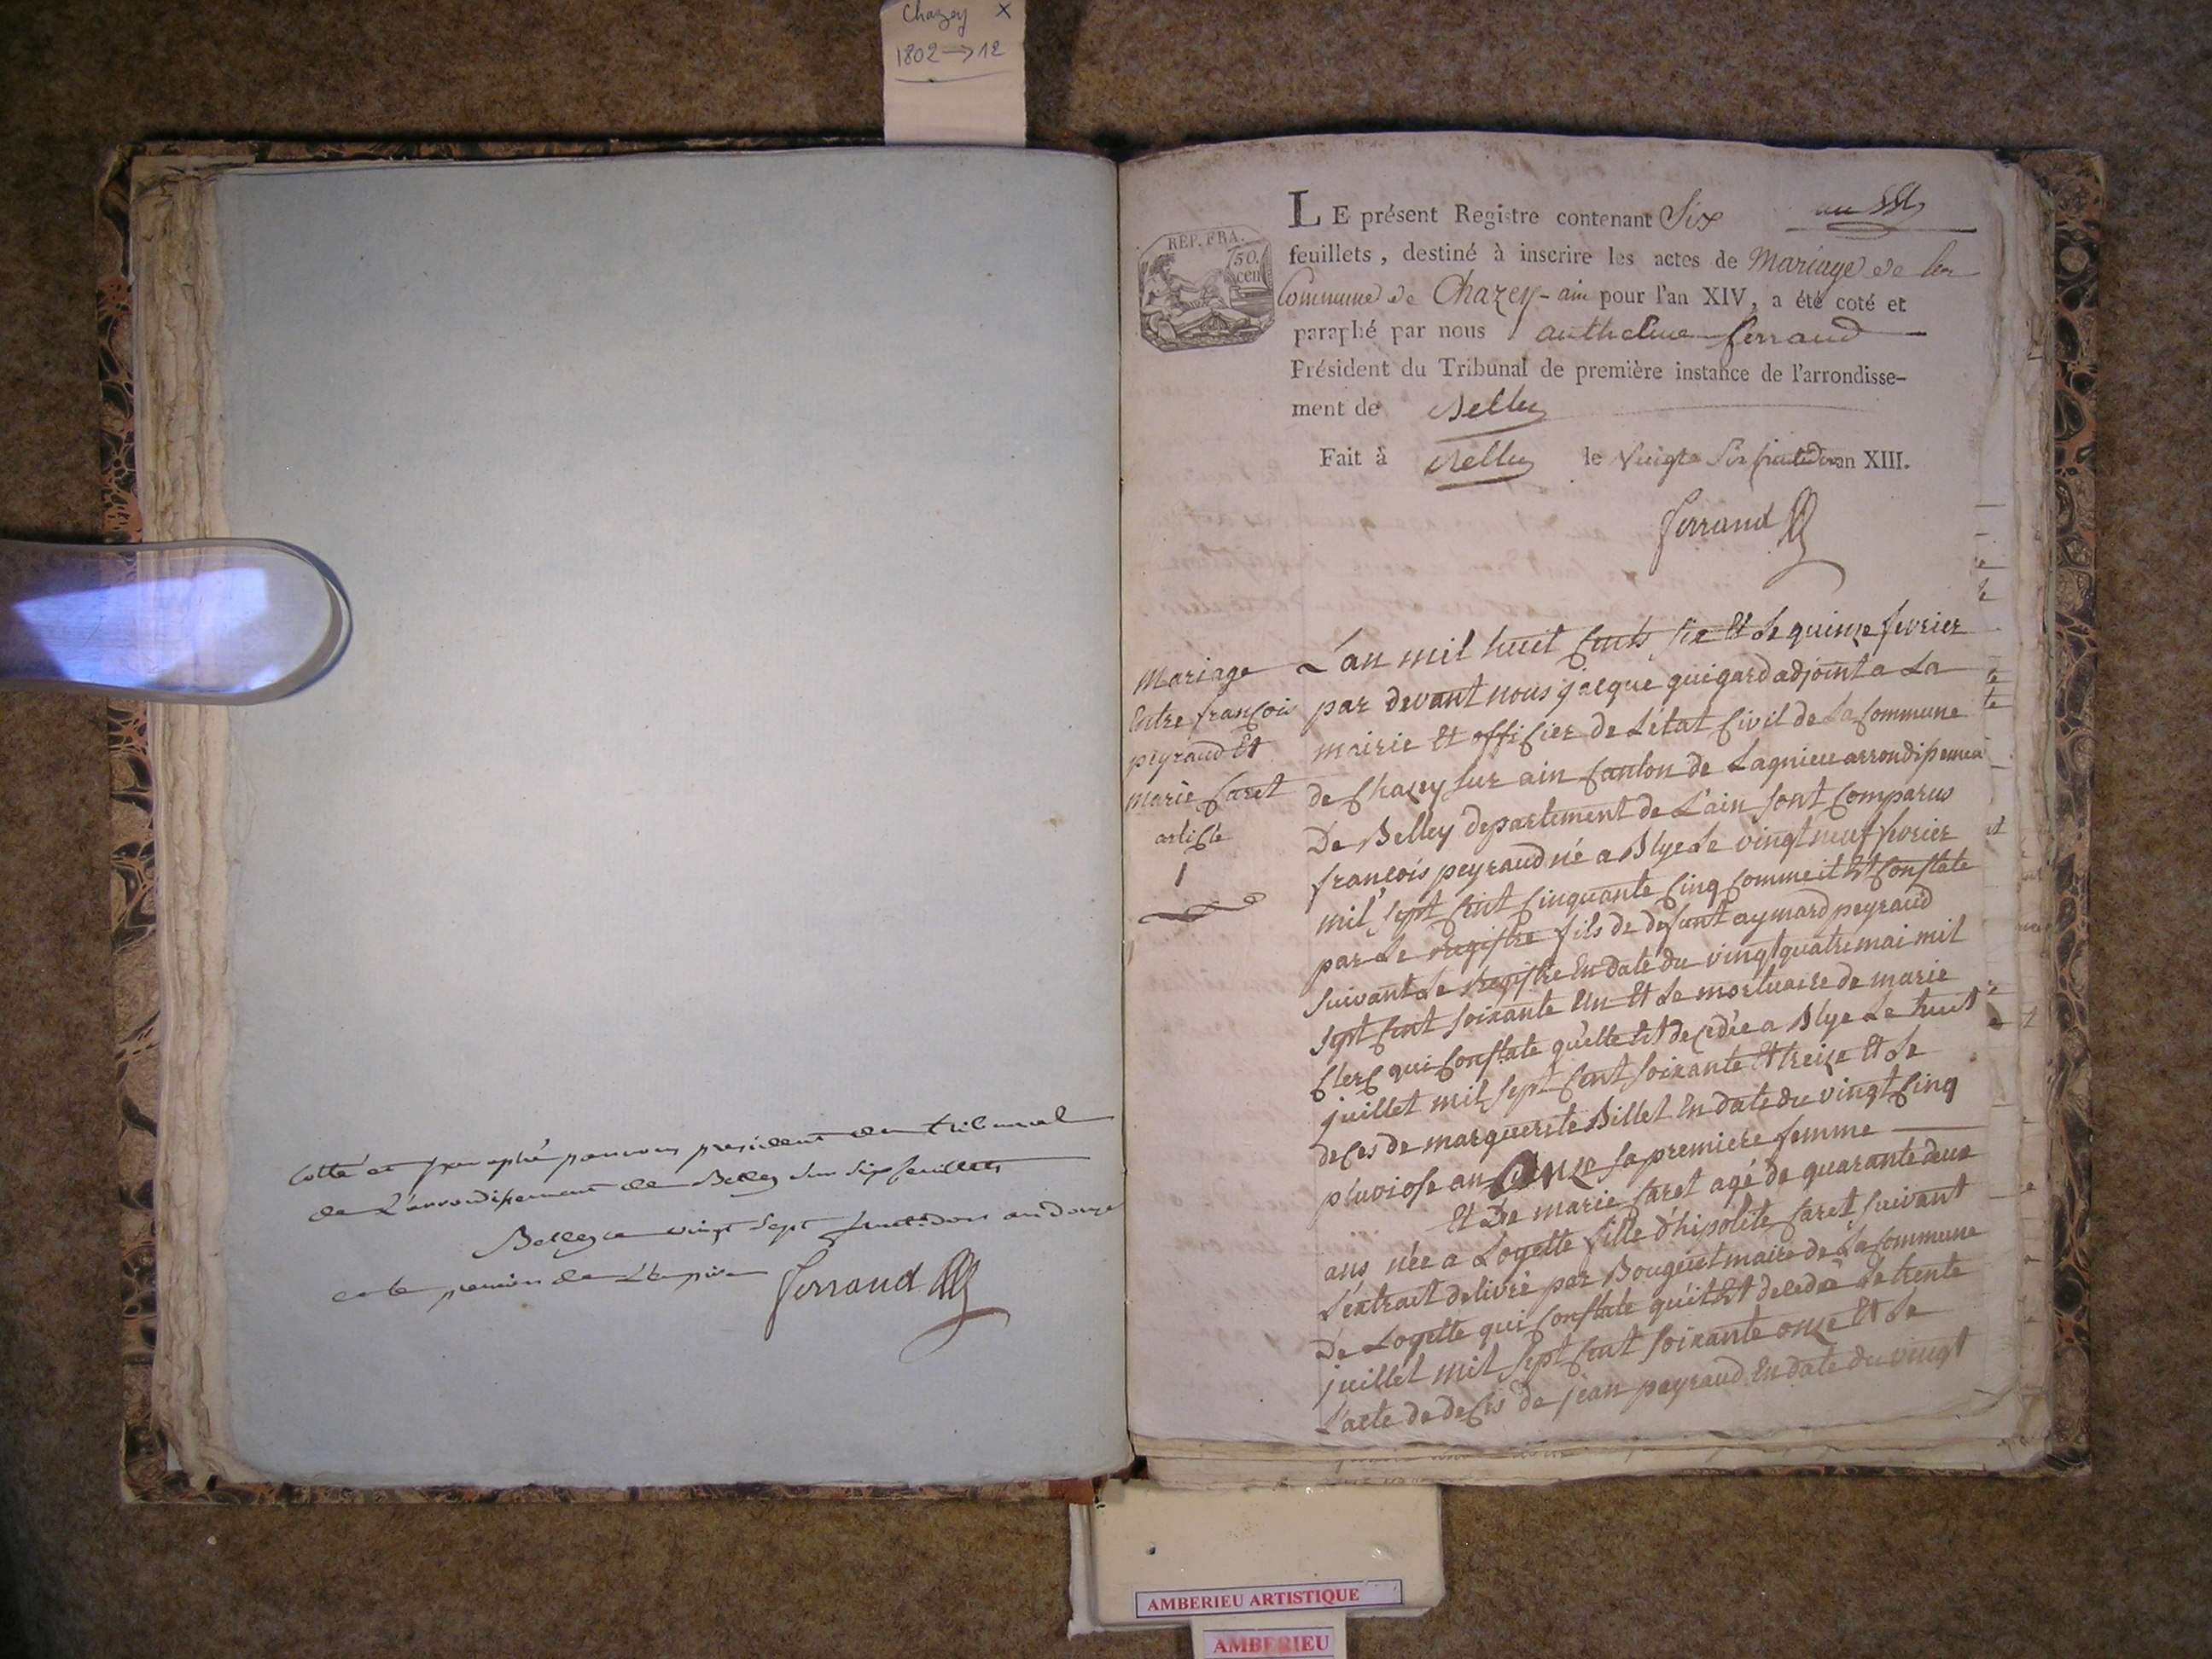 Chazey X
1802 → 12
Cotté et paraphé par nous president du tribunal
de L'arrondissement de Belley Sur Six feuillets
Belley ce vingt Sept fructidor an douze
et le premier de L'Empire Ferrand
REP. FRA.
50.
cen
LE présent Registre contenant Six
feuillets, destiné à inscrire les actes de Mariage de la
Commune de Chazey-ain pour l'an XIV, a été coté et
paraphé par nous anthelme ferrand
Président du Tribunal de première instance de l'arrondisse-
ment de Belley
Fait à Belley le Vingt Six fructidor an XIII.
Ferrand
Mariage
Entre françois
peyraud Et
marie Caret
article
1
L'an mil huit Cents Six Et Le quinze fevrier
par devant nous jacque quigard adjoint a La
mairie Et officier de L'état Civil de La Commune
de Chazey sur ain Canton de Lagnieu arrondissement
De Belley departement de L'ain sont Comparus
françois peyraud né a Blye Le vingt neuf fevrier
mil sept Cent Cinquante Cinq Comme il Est Constate
par Le Registre fils de defunt aymard peyraud
suivant Le Registre En date du vingt quatre mai mil
sept Cent soixante Un Et Le mortuaire de marie
Clerc qui Constate qu'elle Est decedée a Blye Le huit
juillet mil sept Cent soixante Et treize Et Le
deces de marguerite Billet En date du vingt Cinq
pluviose an Onze sa premiere femme
Et De marie Caret agé de quarante deux
ans née a Loyette fille d'hipolite Caret suivant
L'extrait delivré par Bouguet maire de La Commune
De Loyette qui Constate qu'il Est decedé Le trente
juillet mil sept Cent soixante onze Et Le
L'acte de deces de jean peyraud En date du vingt
AMBERIEU ARTISTIQUE
AMBERIEU